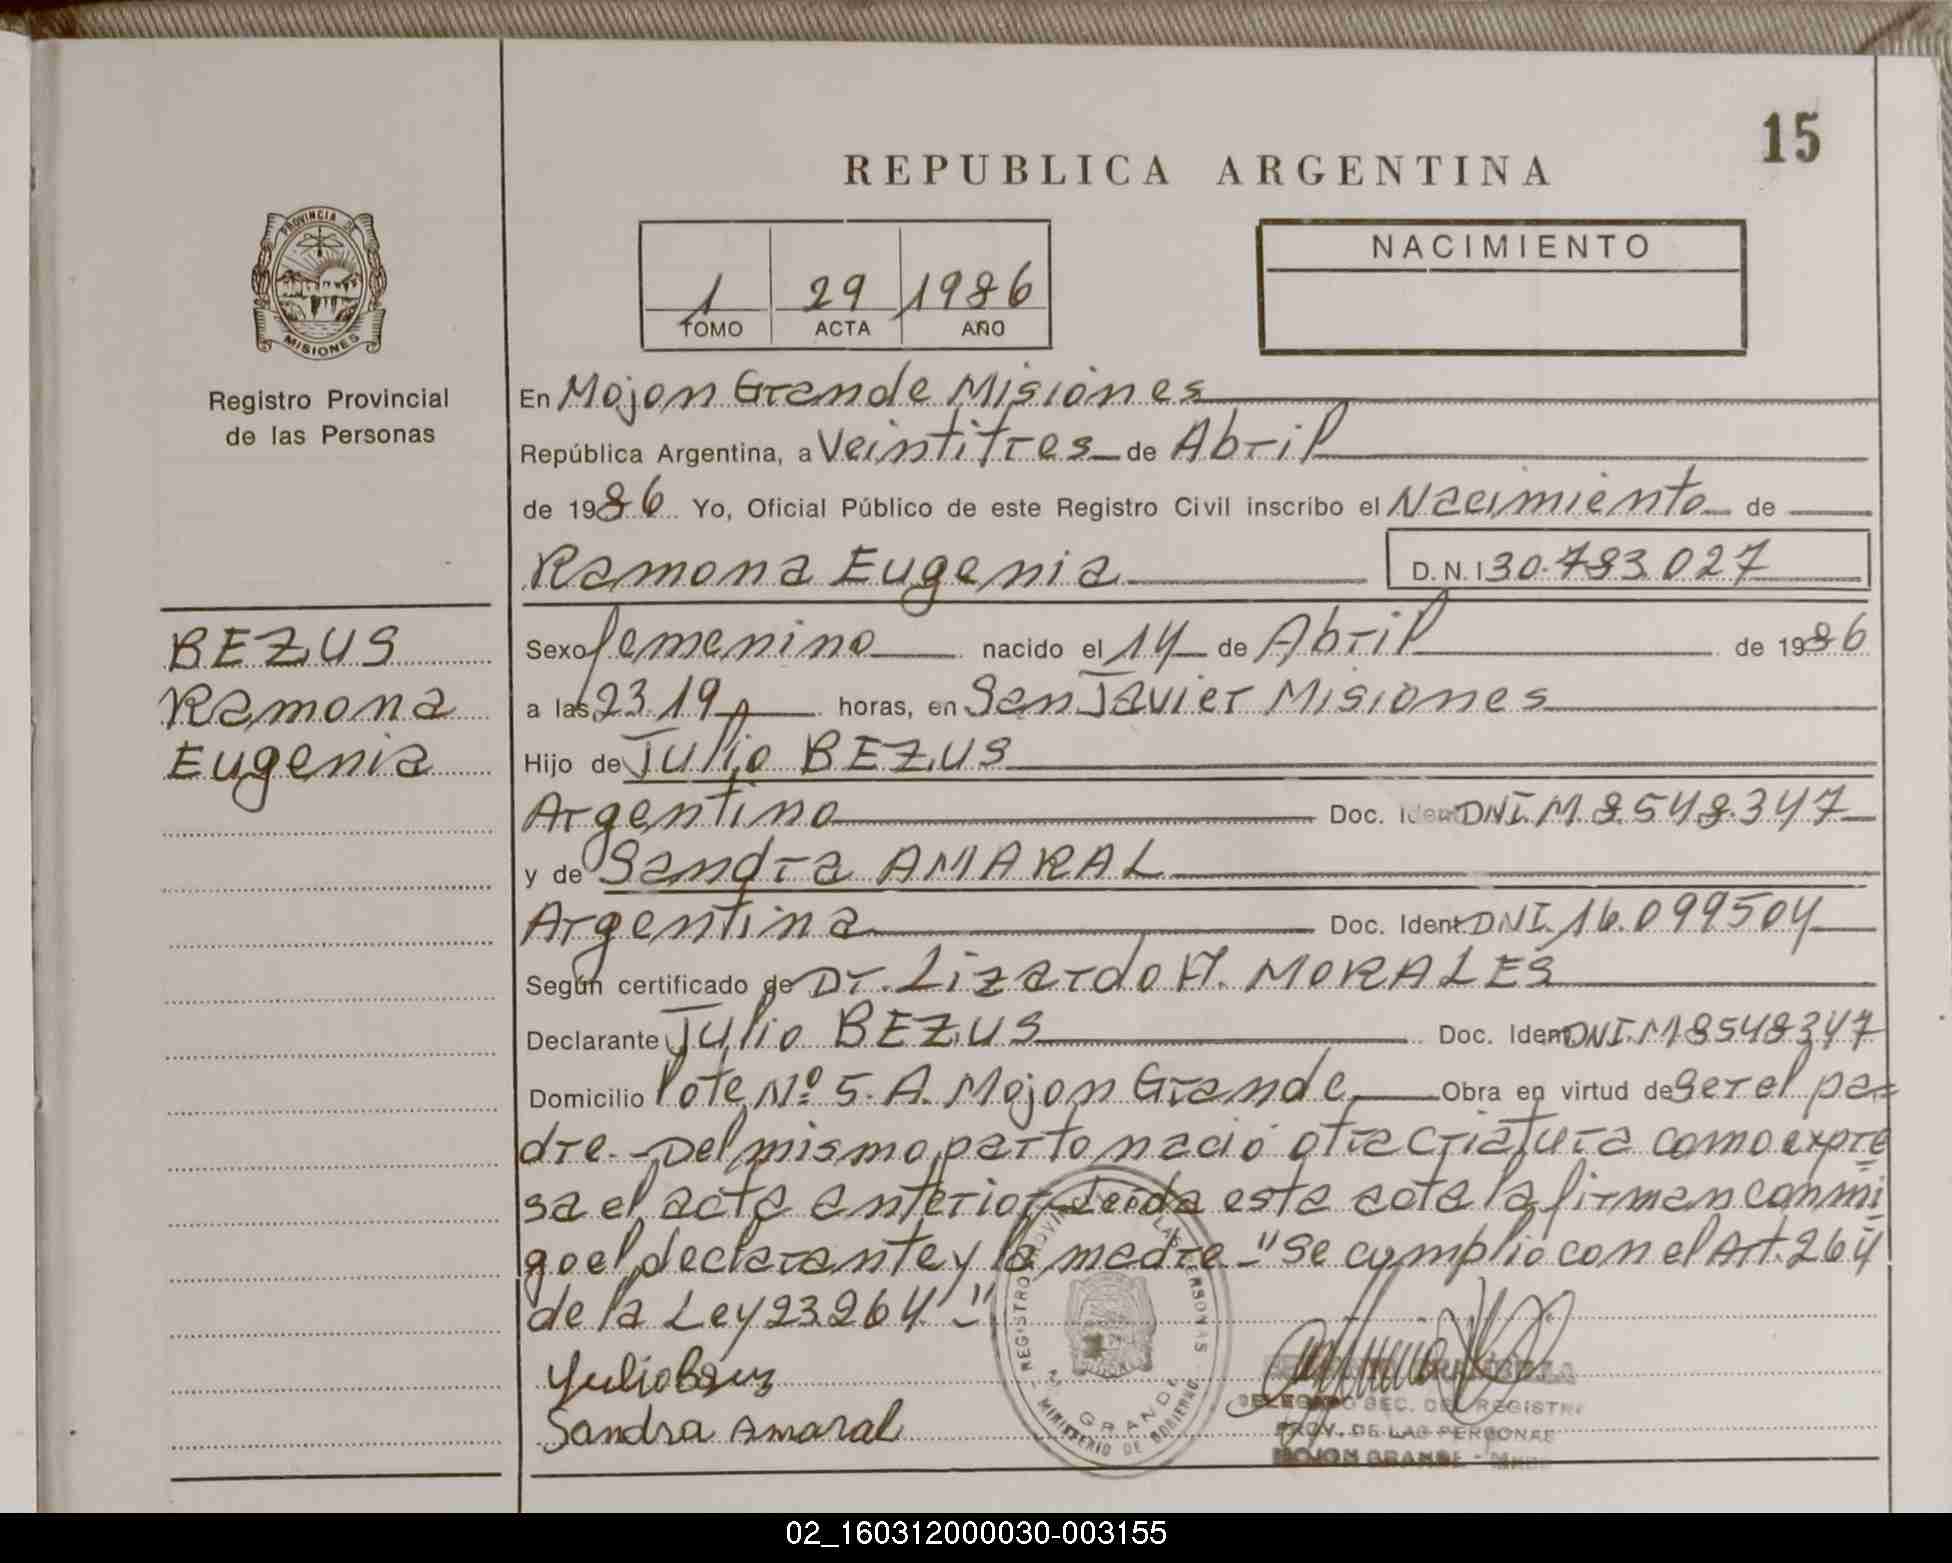 15
REPUBLICA ARGENTINA
PROVINCIA DE
MISIONES
Registro Provincial
de las Personas
1 29 1986
TOMO ACTA AÑO
NACIMIENTO
En Mojon Grande Misiones
República Argentina, a Veintitres de Abril
de 1986 Yo, Oficial Público de este Registro Civil inscribo el Nacimiento de
Ramona Eugenia D.N.I 30.783.027
BEZUS
Ramona
Eugenia
Sexo femenino nacido el 14 de Abril de 1986
a las 23.19 horas, en San Javier Misiones
Hijo de Julio BEZUS
Argentino Doc. Ident DNI.M.8.548.347
y de Sandra AMARAL
Argentina Doc. Ident. DNI.16.099504
Según certificado de Dr. Lizardo A. MORALES
Declarante Julio BEZUS Doc. Ident DNI.M8548347
Domicilio lote Nº 5. A. Mojon Grande Obra en virtud de ser el pa=
dre.-Del mismo parto nació otra criatura como expre
sa el acta anterior-Leida esta acta la firman conmi
go el declarante y la madre-"Se cumplio con el Art.264
de la Ley 23264.-"
Yulio Bezus
Sandra Amaral
REGISTRO PROVINCIAL DE LAS PERSONAS
M. GRANDE
MINISTERIO DE GOBIERNO
DELEGADO SEC. DEL REGISTRO
PROV. DE LAS PERSONAS
MOJON GRANDE -
02_160312000030-003155